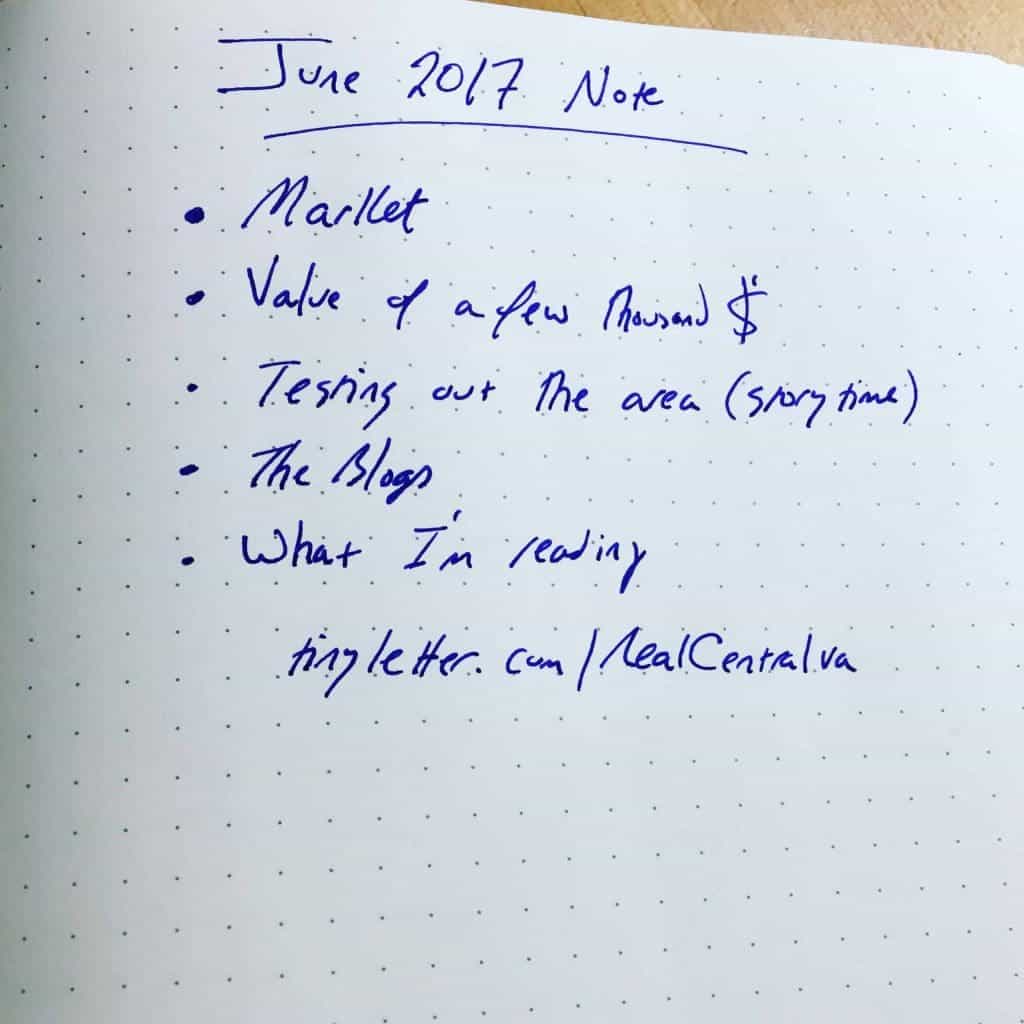 June 2017 Note
• Market
• Value of a few Thousand $
• Testing out The area (story time)
• The Blogs
• What I'm reading
tinyletter.com/RealCentralva